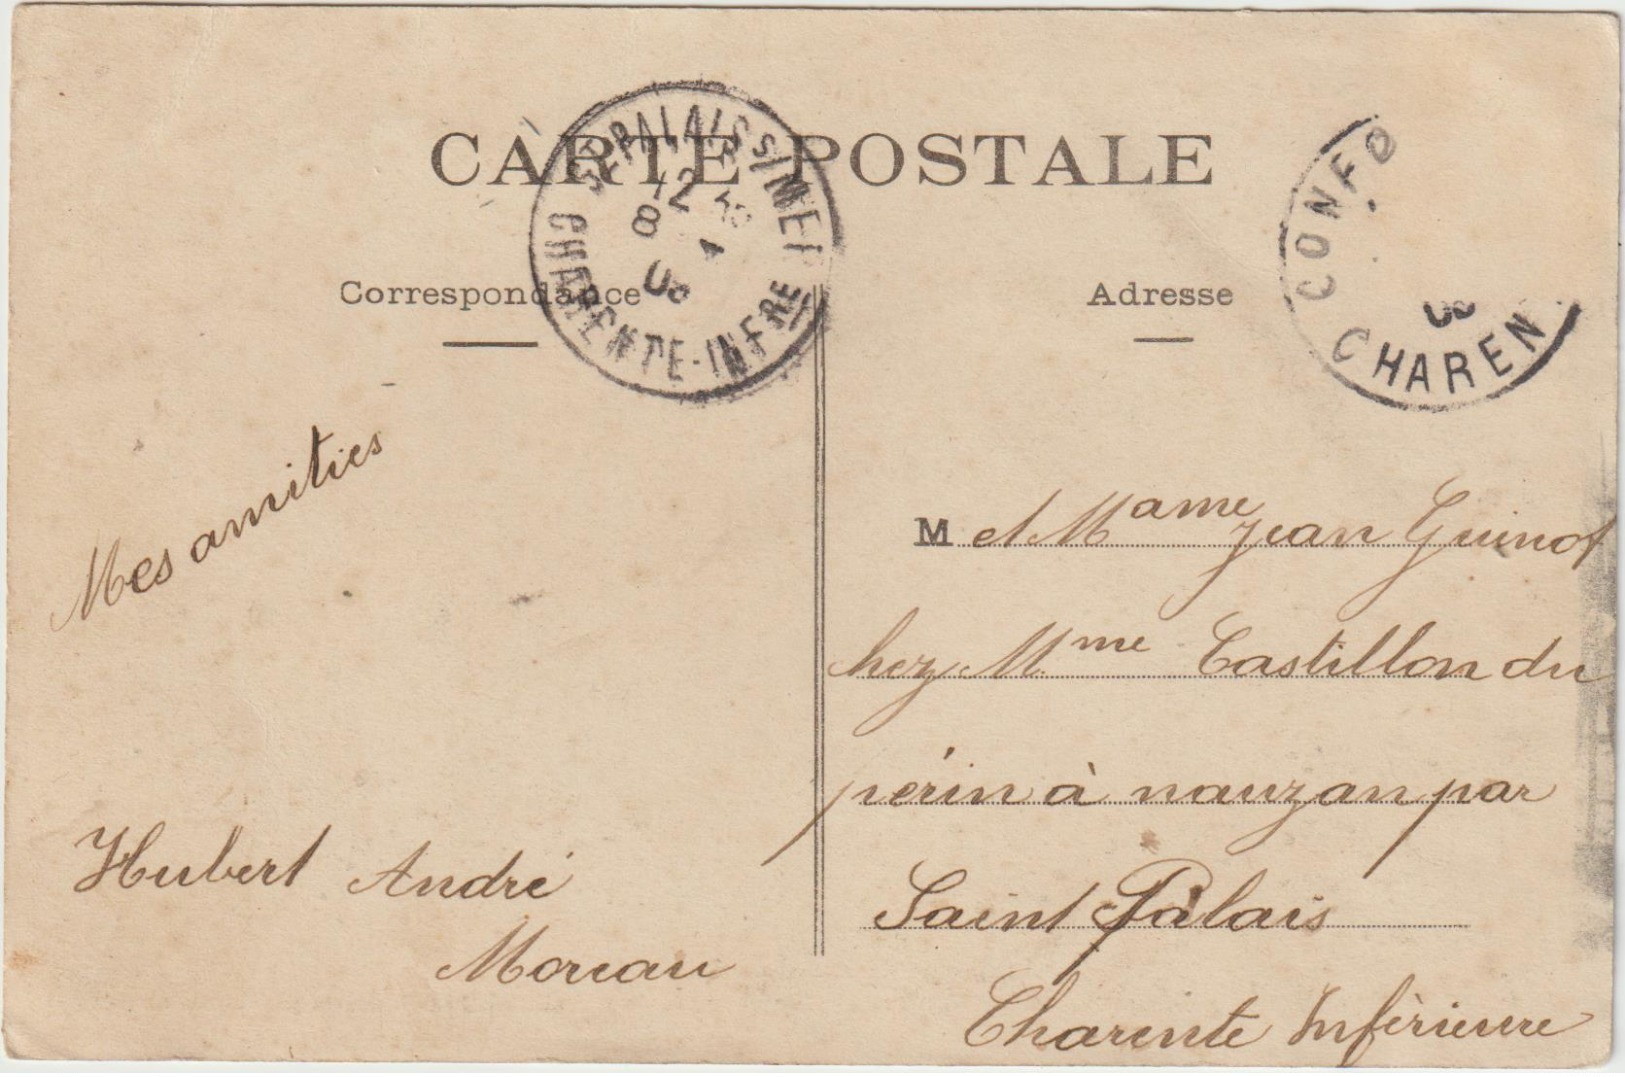 CARTE POSTALE
ST PALAIS S/MER
12
8
08
CHARENTE-INFRE
CONFO
08
CHAREN
Correspondance
Adresse
Mes amities
Hubert André
Moreau
M et Mame Jean Guinot
chez Mme Castillon du
périn à nauzan par
Saint Palais
Charente Inférieure